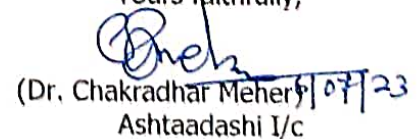 Yours faithfully,
(Dr. Chakradhar Meher)
07/23
Ashtaadashi I/c